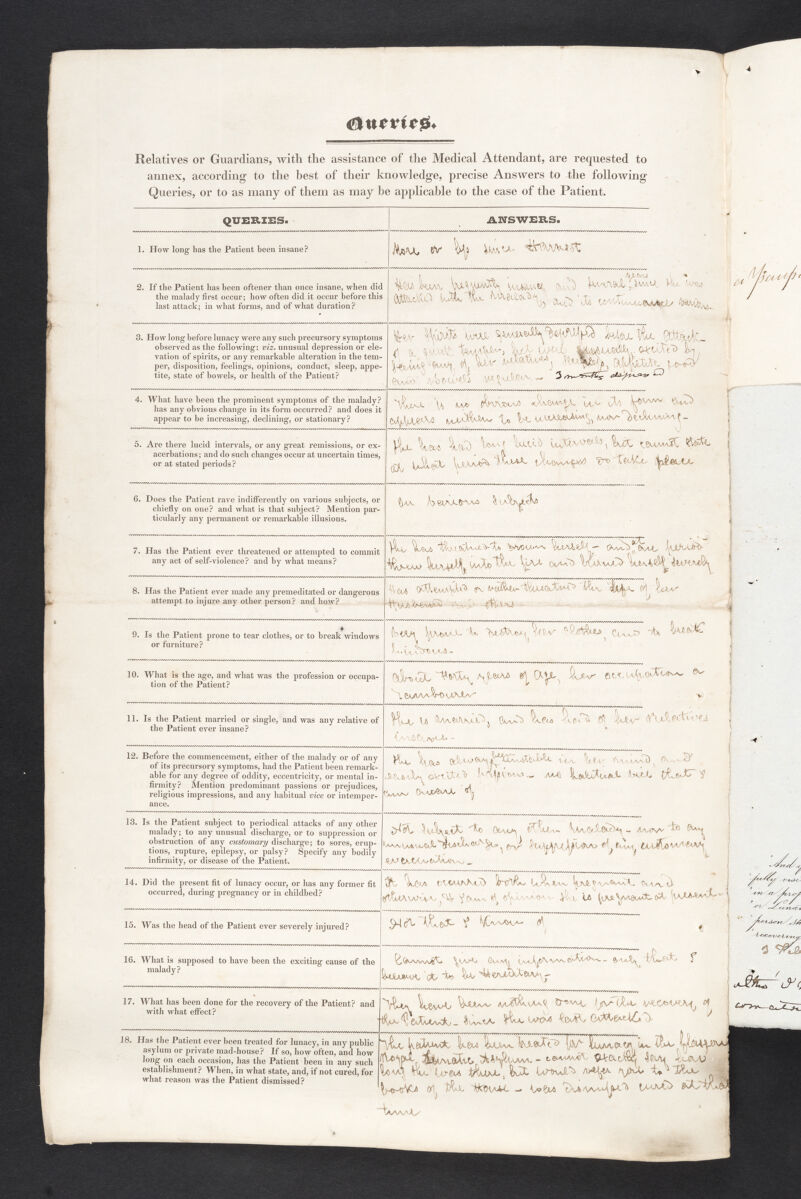 Queries.
Relatives or Guardians, with the assistance of the Medical Attendant, are requested to
annex, according to the best of their knowledge, precise Answers to the following
Queries, or to as many of them as may be applicable to the case of the Patient.
QUERIES.
ANSWERS.
1. How long has the Patient been insane?
More or less since Harvest
2. If the Patient has been oftener than once insane, when did
the malady first occur; how often did it occur before this
last attack; in what forms, and of what duration?
Has been frequently insane, and several years since she was
attacked with the malady, and its continuance various
3. How long before lunacy were any such precursory symptoms
observed as the following: viz. unusual depression or ele-
vation of spirits, or any remarkable alteration in the tem-
per, disposition, feelings, opinions, conduct, sleep, appe-
tite, state of bowels, or health of the Patient?
Her Spirits were generally depressed before the attack
of a quick temper, but excited by
seeing any of her relatives, appetite good
and bowels regular - 3 months depressed
4. What have been the prominent symptoms of the malady?
has any obvious change in its form occurred? and does it
appear to be increasing, declining, or stationary?
There is no obvious change in its form and
appears neither to be increasing, nor declining -
5. Are there lucid intervals, or any great remissions, or ex-
acerbations; and do such changes occur at uncertain times,
or at stated periods?
She has had long lucid intervals, but cannot state
at what period these changes do take place
6. Does the Patient rave indifferently on various subjects, or
chiefly on one? and what is that subject? Mention par-
ticularly any permanent or remarkable illusions.
On various subjects
7. Has the Patient ever threatened or attempted to commit
any act of self-violence? and by what means?
She has threatned to drown herself - and at one period
threw herself into the fire and burned herself severely
8. Has the Patient ever made any premeditated or dangerous
attempt to injure any other person? and how?
Has attempted or rather threatned the life of her
Husband and others
9. Is the Patient prone to tear clothes, or to break windows
or furniture?
Very prone to destroy her clothes, and to break
Windows -
10. What is the age, and what was the profession or occupa-
tion of the Patient?
About Forty years of age, her occupation a
Tambourer
11. Is the Patient married or single, and was any relative of
the Patient ever insane?
She is married, and has had of her relatives
insane -
12. Before the commencement, either of the malady or of any
of its precursory symptoms, had the Patient been remark-
able for any degree of oddity, eccentricity, or mental in-
firmity? Mention predominant passions or prejudices,
religious impressions, and any habitual vice or intemper-
ance.
She has always been unstable in her mind, and
easily excited - no habitual vice that I
am aware of
13. Is the Patient subject to periodical attacks of any other
malady; to any unusual discharge, or to suppression or
obstruction of any customary discharge; to sores, erup-
tions, rupture, epilepsy, or palsy? Specify any bodily
infirmity, or disease of the Patient.
Not subject to any other malady - nor to any
unusual discharge, or suppression of any customary
evacuation -
14. Did the present fit of lunacy occur, or has any former fit
occurred, during pregnancy or in childbed?
It has occurred both when pregnant and
otherwise, & I am of opinion she is pregnant at present -
15. Was the head of the Patient ever severely injured?
Not that I know of
16. What is supposed to have been the exciting cause of the
malady?
Cannot give any information - only that I
believe it to be Hereditary -
17. What has been done for the recovery of the Patient? and
with what effect?
There have been nothing done for the recovery of
the Patient - since she was last attacked
18. Has the Patient ever been treated for lunacy, in any public
asylum or private mad-house? If so, how often, and how
long on each occasion, has the Patient been in any such
establishment? When, in what state, and, if not cured, for
what reason was the Patient dismissed?
The patient has been treated for lunacy in the Glasgow
Royal Lunatic Asylum - cannot exactly say how
long she was there, but would refer you to the
books of the House - was dismissed cured at that
time